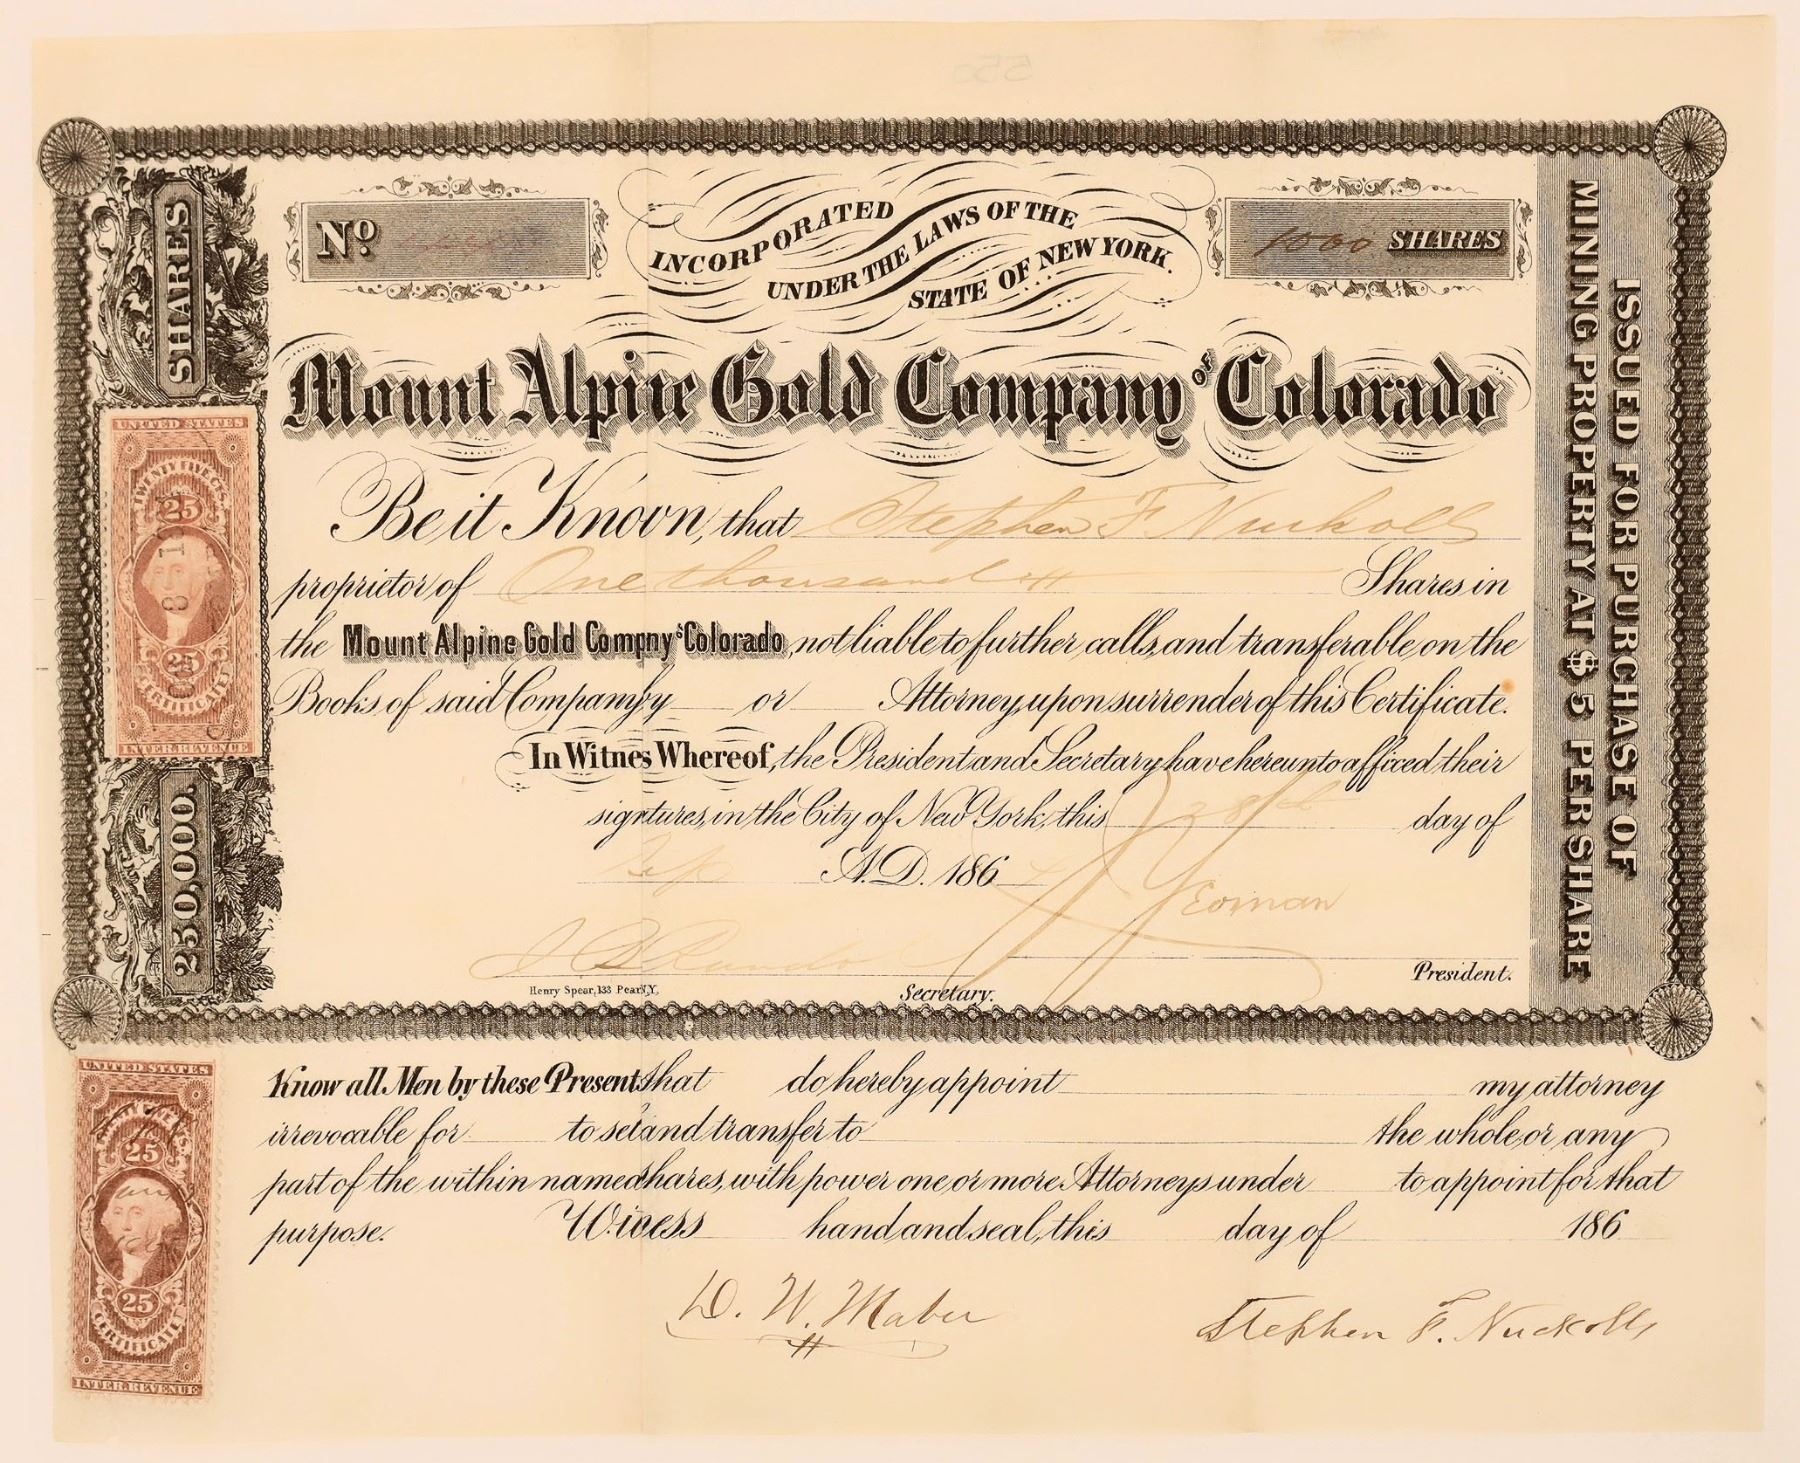 INCORPORATED
UNDER THE LAWS OF THE
STATE OF NEW YORK.
No.
1000 SHARES
SHARES
250,000.
Mount Alpine Gold Company of Colorado
Be it Known, that Stephen F Nuckolls
proprietor of One thousand Shares in
the Mount Alpine Gold Compny of Colorado, not liable to further calls, and transferable on the
Books of said Company by or Attorney, upon surrender of this Certificate.
In Witnes Whereof, the President and Secretary have hereunto afficed their
signtures, in the City of New York, this 28th day of
Sep A.D. 186
Yeoman
President.
Secretary.
Henry Spear, 133 Pearl N.Y.
ISSUED FOR PURCHASE OF
MINING PROPERTY AT $5 PER SHARE
UNITED STATES
TWENTY FIVE CTS.
25
25
CERTIFICATE
INTER. REVENUE
Know all Men by these Present, that do hereby appoint my attorney
irrevocable for to sel and transfer to the whole, or any
part of the within named shares, with power one or more Attorneys under to appoint for that
purpose. hand and seal, this day of 186
UNITED STATES
25
25
CERTIFICATE
INTER. REVENUE
D. W. Maber
Stephen F. Nuckolls